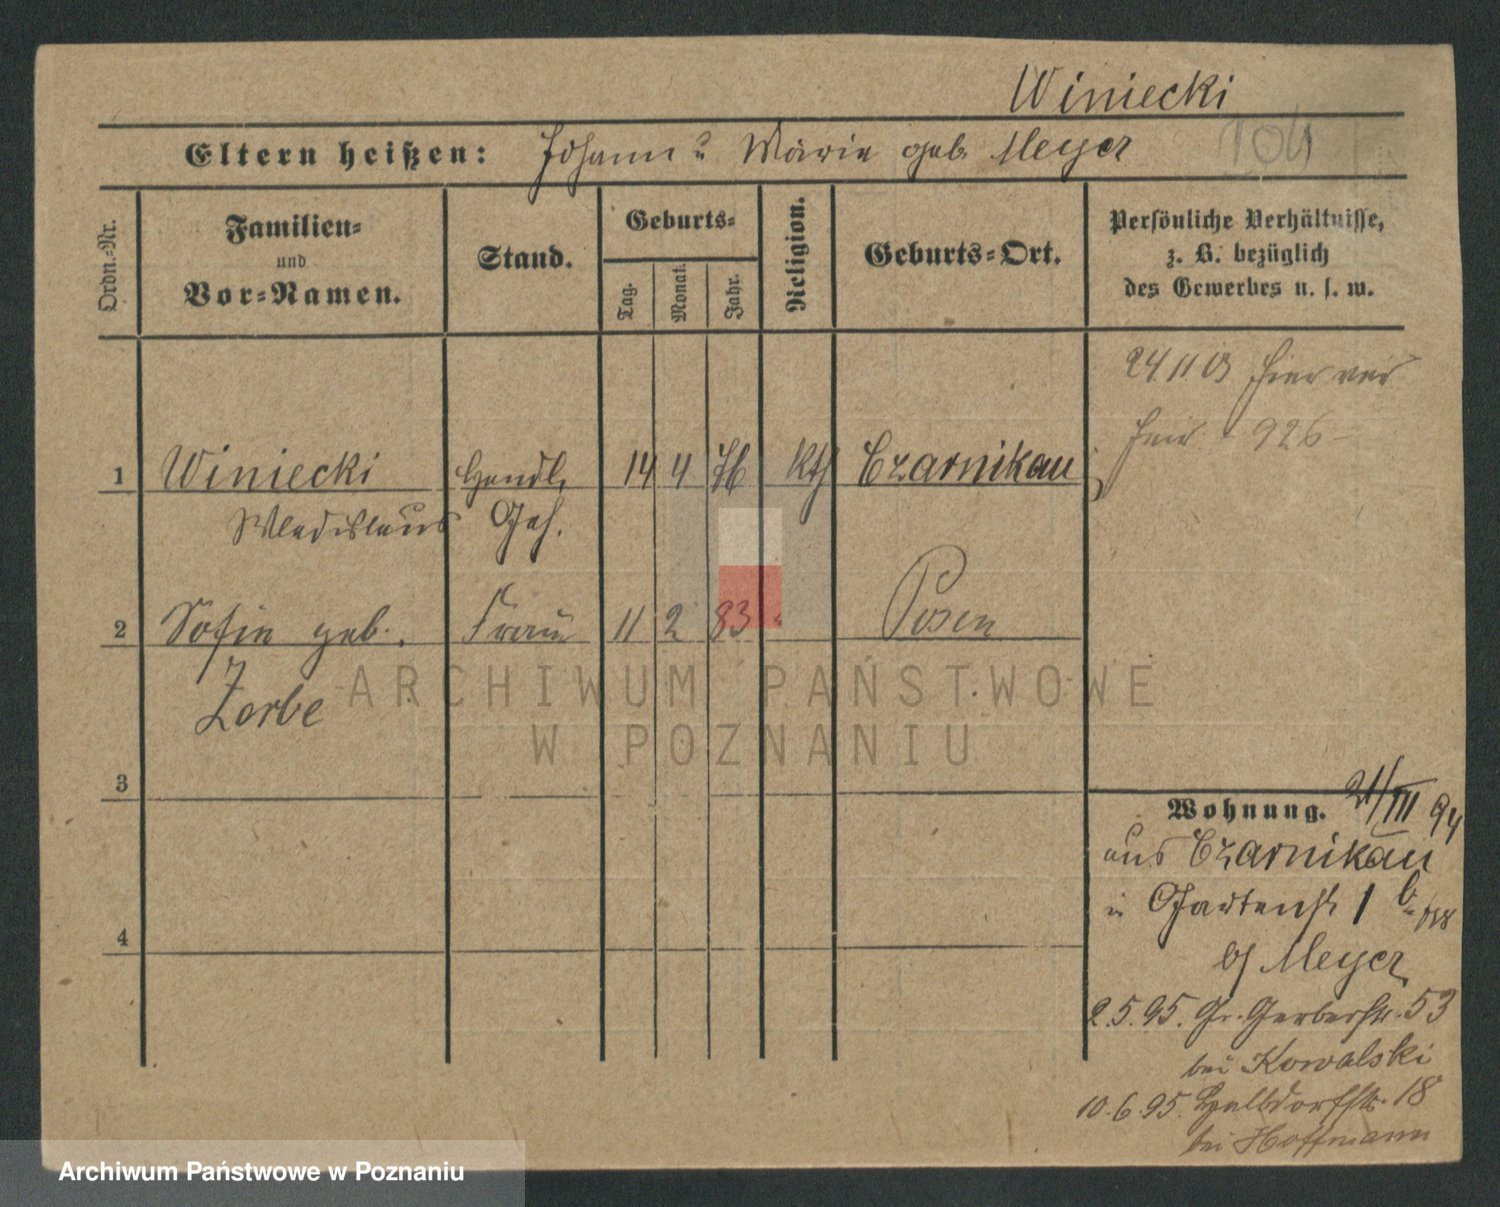 Winiecki
Eltern heißen: Johann u Marie geb Meyer
104
Ordn.-Nr.
Familien-
und
Vor-Namen.
Stand.
Geburts-
Tag.
Monat.
Jahr.
Religion.
Geburts-Ort.
Persönliche Verhältnisse,
z. B. bezüglich
des Gewerbes u. s. w.
24 11 03 hier ver
heir. 926
1 Winiecki Handl. 14 4 76 kth Czarnikau
Wladislaus Geh.
2 Sofie geb. Frau 11 2 83 " Posen
Zerbe
ARCHIWUM PAŃSTWOWE
W POZNANIU
3
4
Wohnung. 21/III 94
aus Czarnikau
in Gartenstr 1
b/ Meyer
2.5.95. Gr. Gerberstr. 53
bei Kowalski
10.6.95. Halbdorfstr. 18
bei Hoffmann
Archiwum Państwowe w Poznaniu